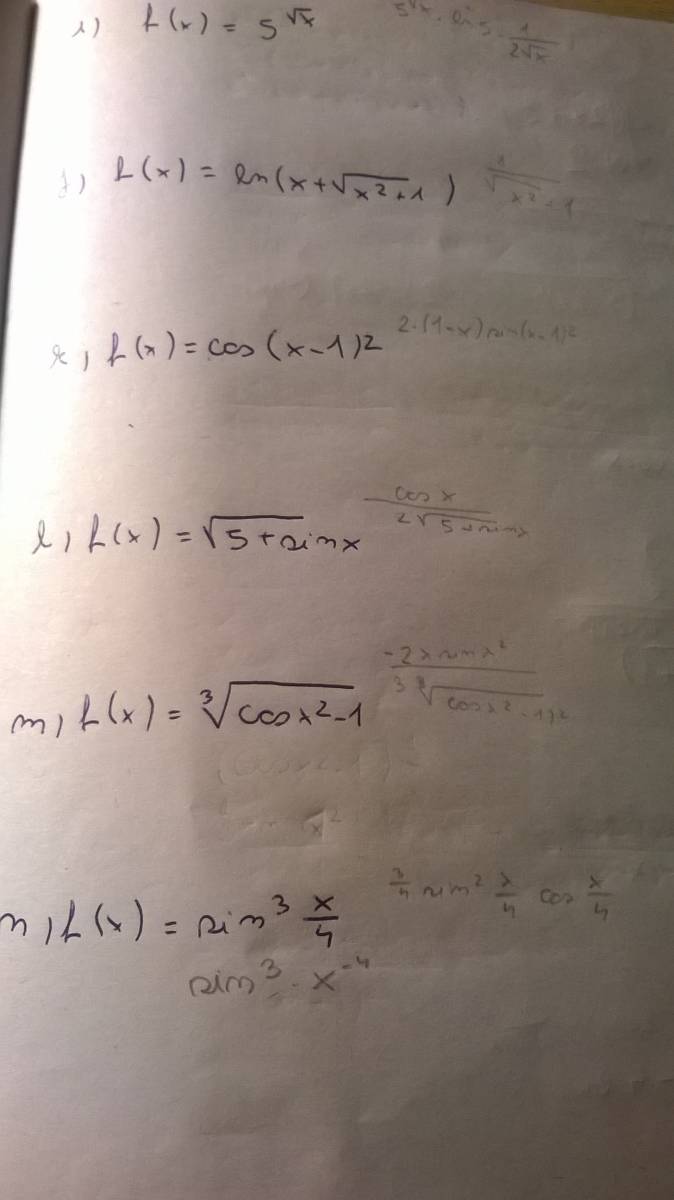 i) f(x) = 5^√x 5^√x · ln 5 · 1/(2√x)
j) f(x) = ln(x+√(x²+1)) 1/√(x²+1)
k, f(x) = cos(x-1)² 2·(1-x) sin(x-1)²
l, f(x) = √(5+sinx) cos x/(2√(5+sinx))
m, f(x) = ³√(cosx²-1) -2x sin x²/(3 ³√(cosx²-1)²)
n, f(x) = sin³ x/4 3/4 sin² x/4 cos x/4
sin³ · x⁻⁴